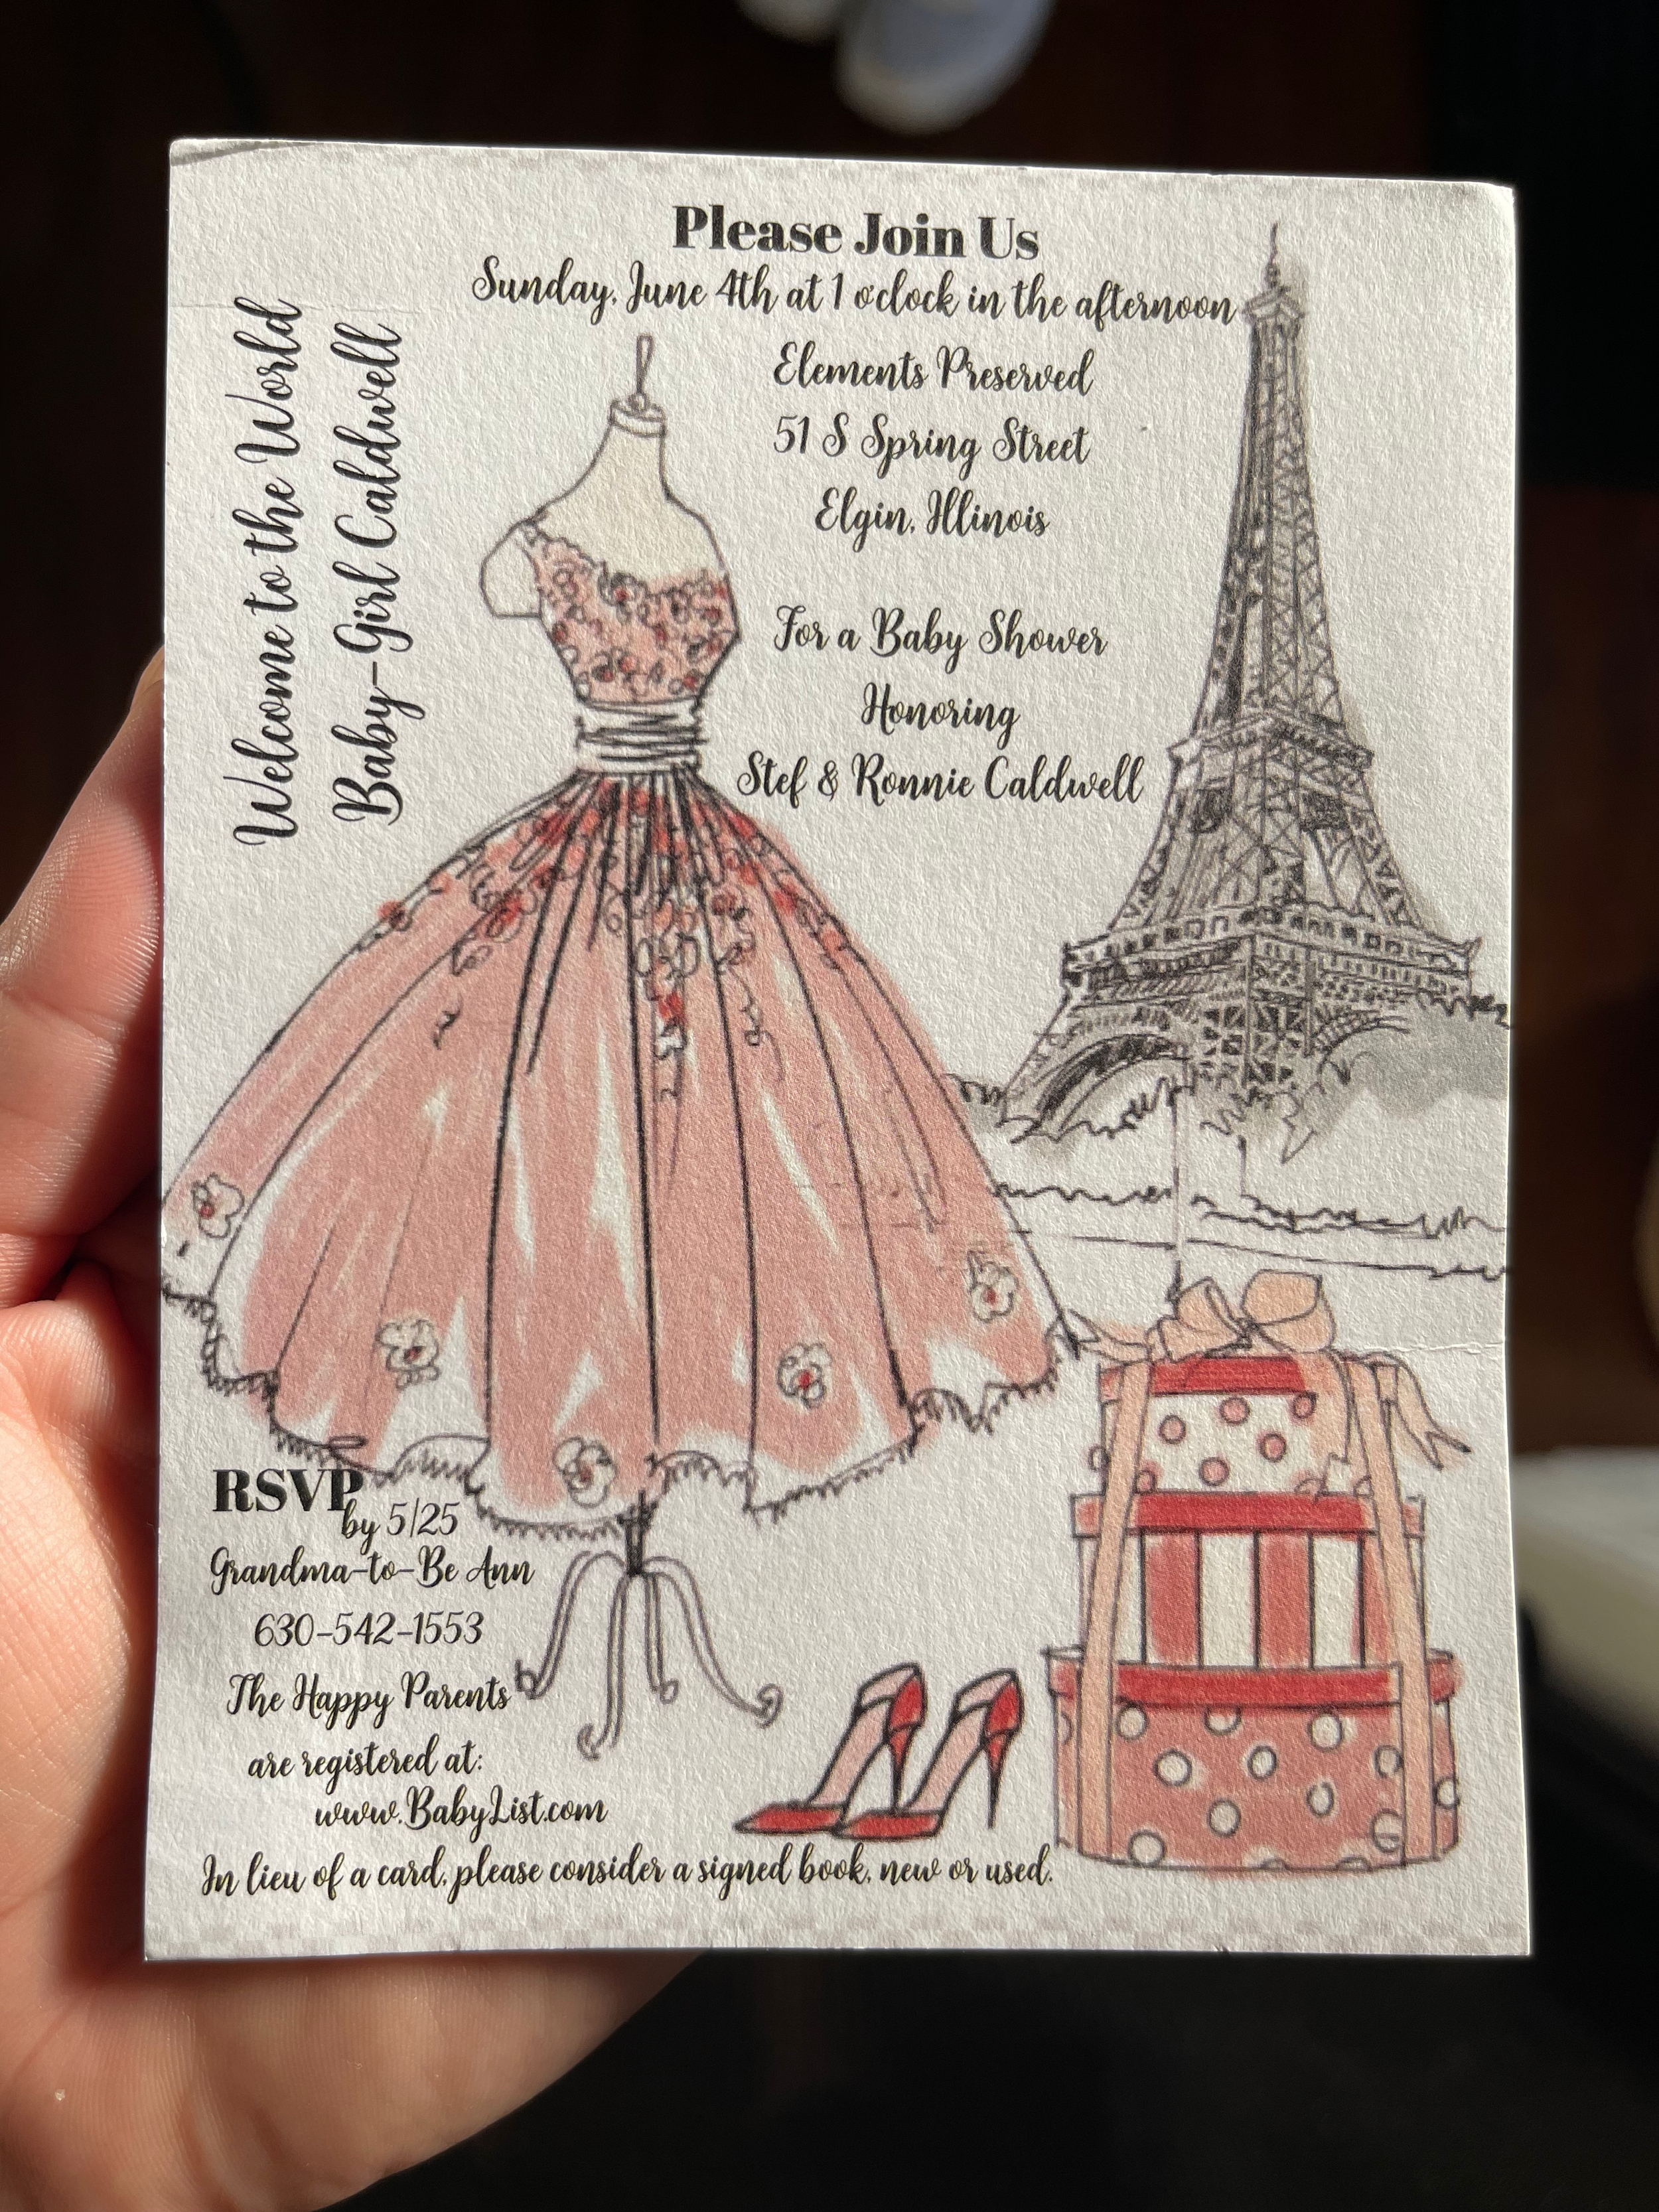 Please Join Us
Sunday, June 4th at 1 o'clock in the afternoon
Welcome to the World
Baby-Girl Caldwell
Elements Preserved
51 S Spring Street
Elgin, Illinois
For a Baby Shower
Honoring
Stef & Ronnie Caldwell
RSVP
by 5/25
Grandma-to-Be Ann
630-542-1553
The Happy Parents
are registered at:
www.BabyList.com
In lieu of a card, please consider a signed book, new or used.